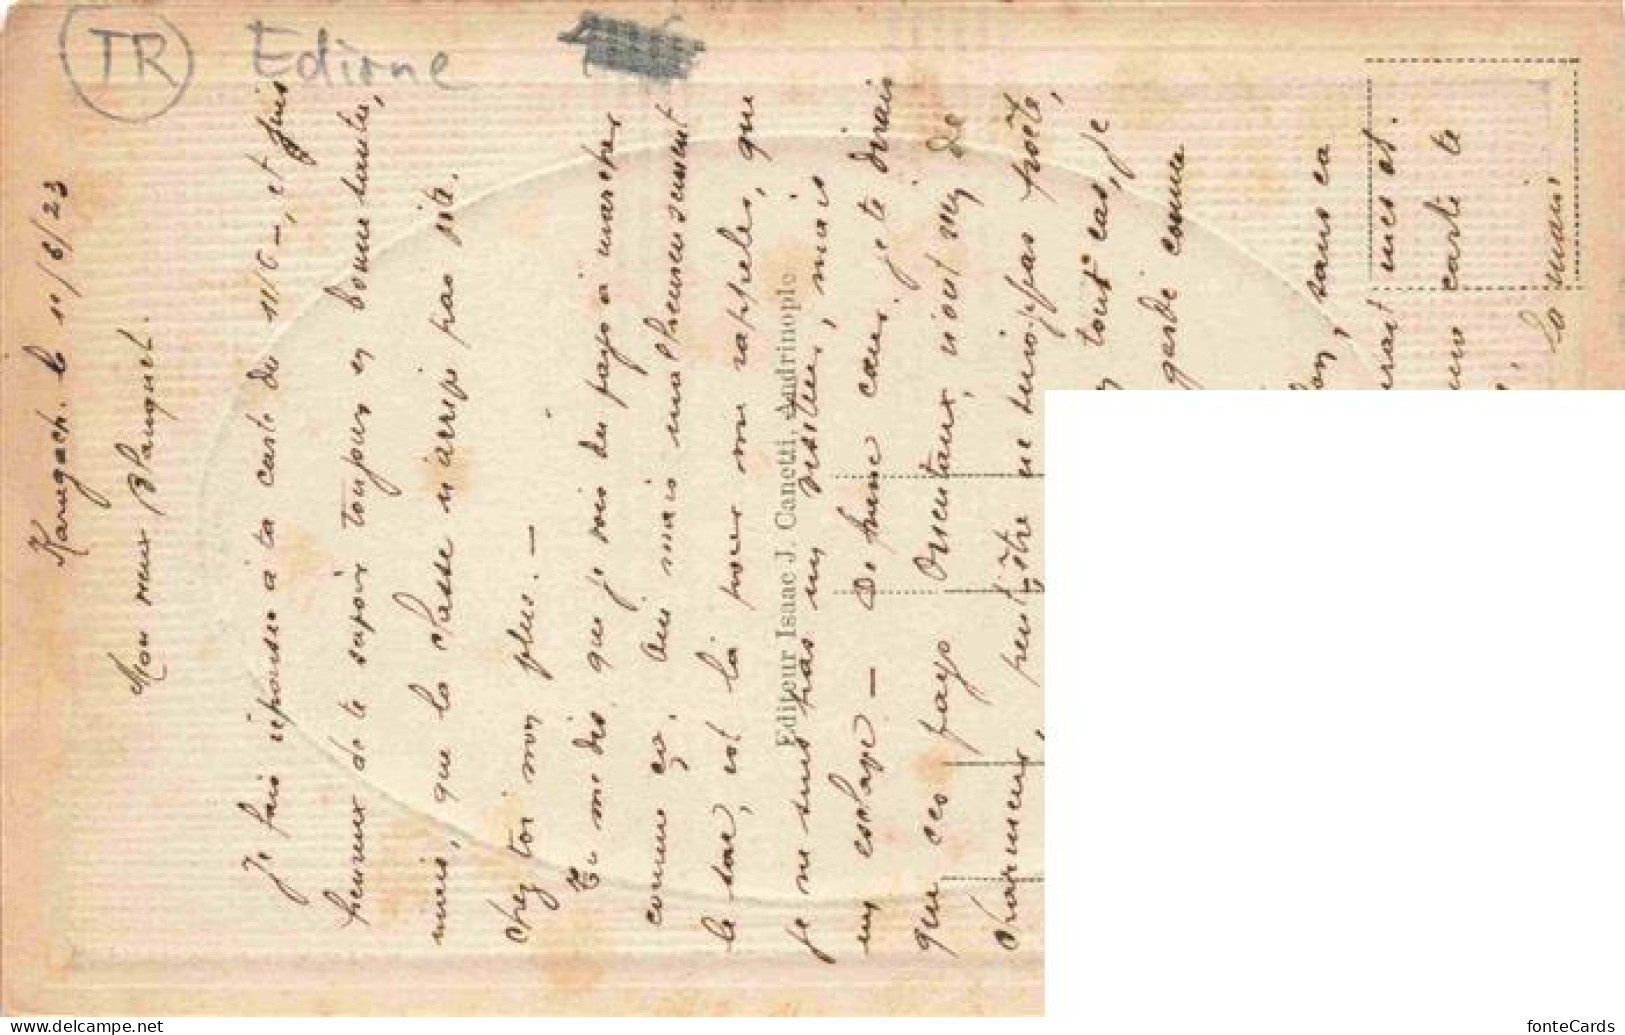 TR Edirne
Karagach. le 11/6/23
Mon vieux Blanquet.
Je fais réponse à ta carte du 11/6 –, et suis
heureux de te savoir toujours en bonne santée,
mais, que la classe n'arrive pas vite.
chez toi non plus. –
Tu me dis que je vois du pays à marcher
comme ça. Oui mais malheureusement
le sac, est là pour me rappeler, que
je ne suis pas un visiteur, mais
un esclave – De prime cœur je te dirais
que ces pays Orientaux, n'ont rien de
charmeur, peut-être ne suis-je pas poëte,
tout cas, je
garde comme
don, sans ca
mes et.
carte te
la main
Editeur Isaac J. Canetti, Andrinople
www.delcampe.net
fonteCards